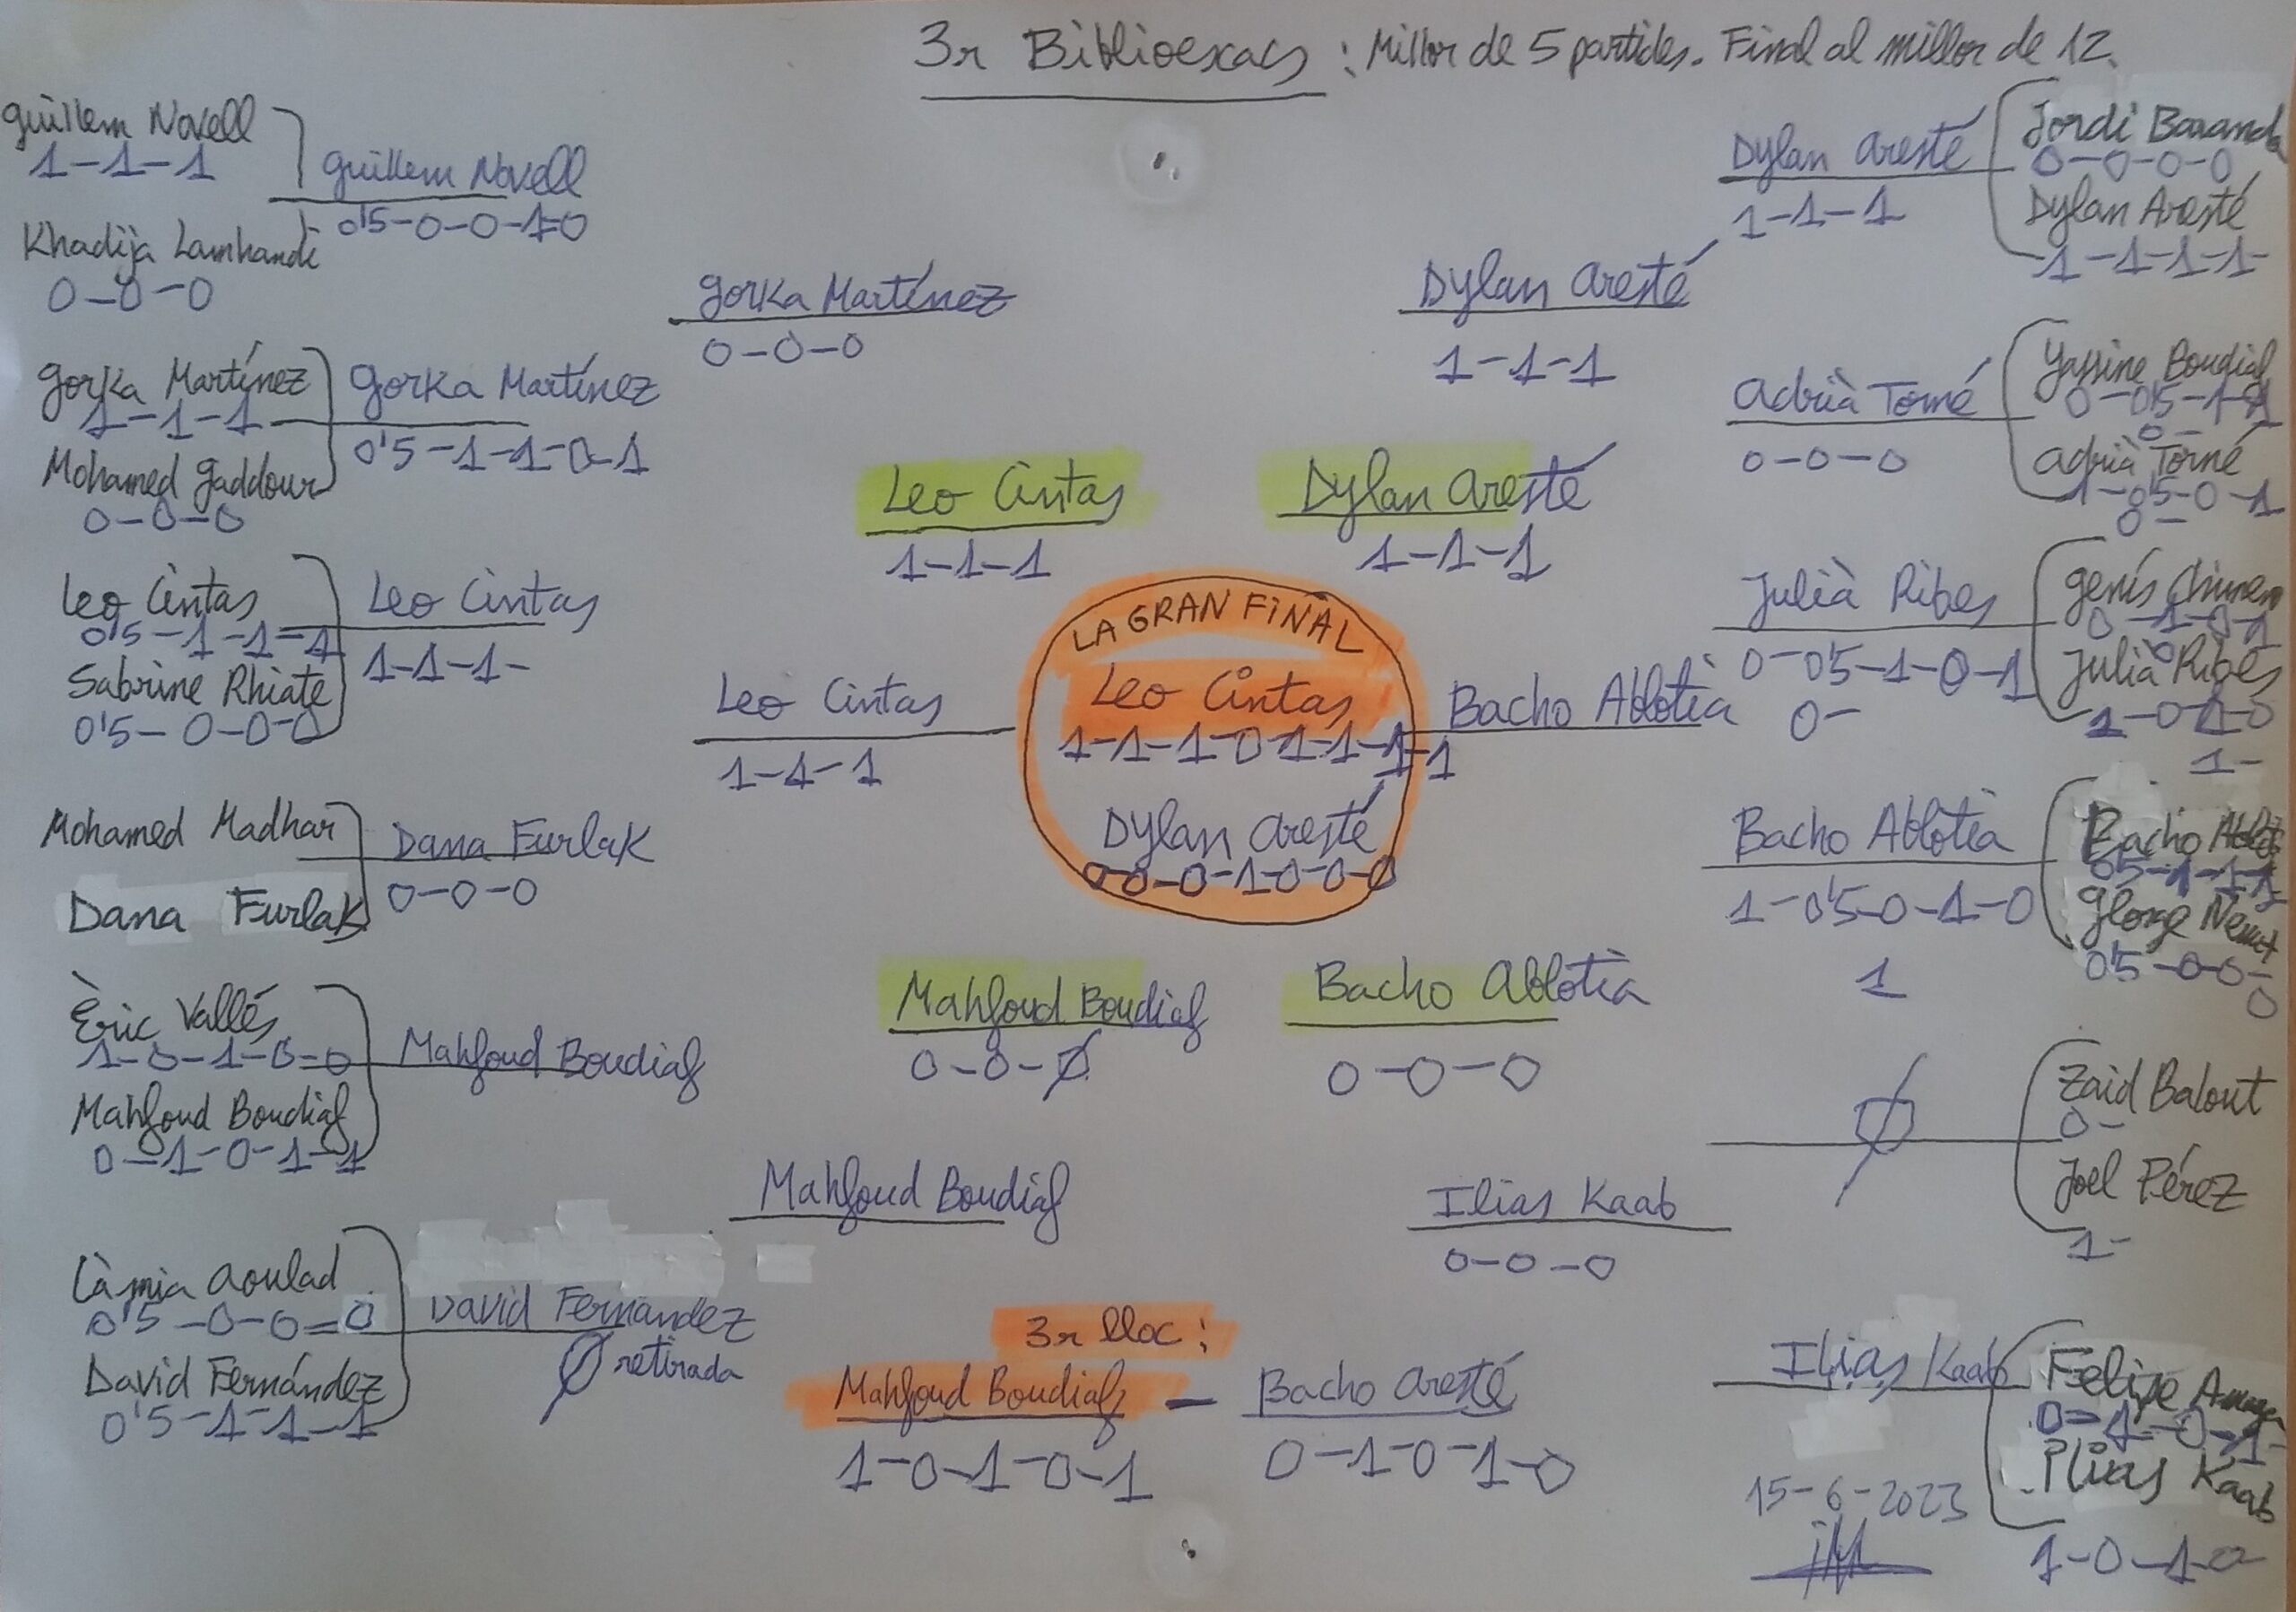 3r Biblioexacs : Millor de 5 partides. Final al millor de 12.
Guillem Novell
1-1-1
Khadija Lamhandi
0-0-0
Gorka Martínez
1-1-1
Mohamed Gaddour
0-0-0
Leo Cintas
0'5-1-1-1
Sabrine Rhiate
0'5-0-0-0
Mohamed Madhar
Dana Furlak
Èric Vallés
1-0-1-0-0
Mahfoud Boudiaf
0-1-0-1-1
Làmia Aoulad
0'5-0-0-0
David Fernández
0'5-1-1-1
Guillem Novell
0'5-0-0-1-0
Gorka Martínez
0'5-1-1-0-1
Leo Cintas
1-1-1-
Dana Furlak
0-0-0
Mahfoud Boudiaf
David Fernández
Ø retirada
Gorka Martínez
0-0-0
Leo Cintas
1-1-1
Mahfoud Boudiaf
Leo Cintas
1-1-1
Mahfoud Boudiaf
0-0-Ø
LA GRAN FINAL
Leo Cintas
1-1-1-0-1-1-1-1
Dylan Aresté
0-0-0-1-0-0-0
Dylan Aresté
1-1-1
Bacho Ablotia
0-0-0
3r lloc:
Mahfoud Boudiaf - Bacho Aresté
1-0-1-0-1
0-1-0-1-0
Dylan Aresté
1-1-1
Bacho Ablotia
Ilias Kaab
0-0-0
Dylan Aresté
1-1-1
Adrià Torné
0-0-0
Julià Ribes
0-0'5-1-0-1
0-
Bacho Ablotia
1-0'5-0-1-0
1
Ø
Ilias Kaab
Jordi Baranda
0-0-0-0
Dylan Aresté
1-1-1-1-
Yassine Boudiaf
0-0'5-1-1
0-
Adrià Torné
1-0'5-0-1
0-
Genís
0-1-0-1
0
Julià Ribes
1-0-1-0
1-
Bacho
0'5-1-1-1
George
0'5-0-0-
0
Zaid Balout
0-
Joel Pérez
1-
Felipe
0-1-0-1-
Ilias Kaab
1-0-1-0
15-6-2023